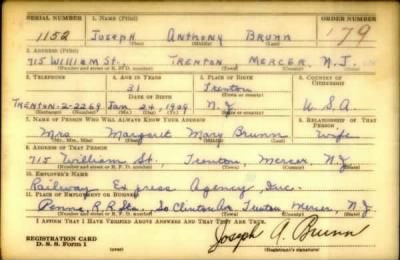 SERIAL NUMBER 1. NAME (Print) ORDER NUMBER
1152 JOSEPH ANTHONY BRUNN 179
(First) (Middle) (Last)
2. ADDRESS (Print)
715 William St., TRENTON MERCER, N.J.
(Number and street or R. F. D. number) (Town) (County) (State)
3. TELEPHONE 4. AGE IN YEARS 5. PLACE OF BIRTH 6. COUNTRY OF CITIZENSHIP
31 Trenton
DATE OF BIRTH (Town or county)
TRENTON-2-2269 Jan. 24, 1909 N.J. U.S.A.
(Exchange) (Number) (Mo.) (Day) (Yr.) (State or country)
7. NAME OF PERSON WHO WILL ALWAYS KNOW YOUR ADDRESS 8. RELATIONSHIP OF THAT PERSON
Mrs. Margaret Mary Brunn Wife
(Mr., Mrs., Miss) (First) (Middle) (Last)
9. ADDRESS OF THAT PERSON
715 William St., Trenton, Mercer, N.J.
(Number and street or R. F. D. number) (Town) (County) (State)
10. EMPLOYER'S NAME
Railway Express Agency, Inc.
11. PLACE OF EMPLOYMENT OR BUSINESS
Penna. R.R. Sta. So Clinton Av Trenton Mercer, N.J.
(Number and street or R. F. D. number) (Town) (County) (State)
I AFFIRM THAT I HAVE VERIFIED ABOVE ANSWERS AND THAT THEY ARE TRUE.
REGISTRATION CARD
D. S. S. Form 1 Joseph A. Brunn
(over) (Registrant's signature)